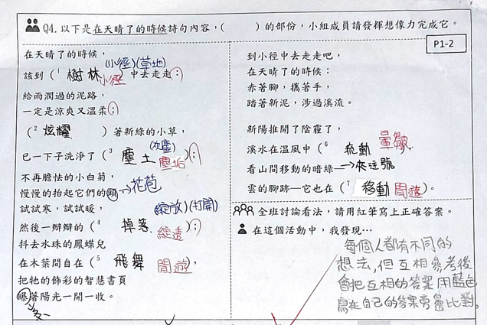 Q4. 以下是在天晴了的時候詩句內容，（　　）的部份，小組成員請發揮想像力完成它。
P1-2
在天晴了的時候，
(小徑)(草地)
該到（¹ 樹林 小徑 中去走走：）
給雨潤過的泥路，
一定是涼爽又溫柔；
（² 炫耀 ）著新綠的小草，
已一下子洗淨了（³ 塵土 塵垢）；
不再膽怯的小白菊，
慢慢的抬起它們的頭→花苞
試試寒，試試暖，
(綻放)(打開)
然後一瓣瓣的（⁴ 掉落 綻透）；
抖去水珠的鳳蝶兒
在木葉間自在（⁵ 飛舞 閒遊），
把牠的飾彩的智慧書頁
曝著陽光一開一收。
到小徑中去走走吧，
在天晴了的時候：
赤著腳，攜著手，
踏著新泥，涉過溪流。
新陽推開了陰霾了，
溪水在溫風中（⁶ 飛動 暈皺
看山間移動的暗綠—→夾注號
雲的腳跡—它也在（⁷ 移動 閒遊）。
全班討論看法，請用紅筆寫上正確答案。
在這個活動中，我發現…
每個人都有不同的
想法，但互相參考後
會把互相的答案用藍色
寫在自己的答案旁邊比對。